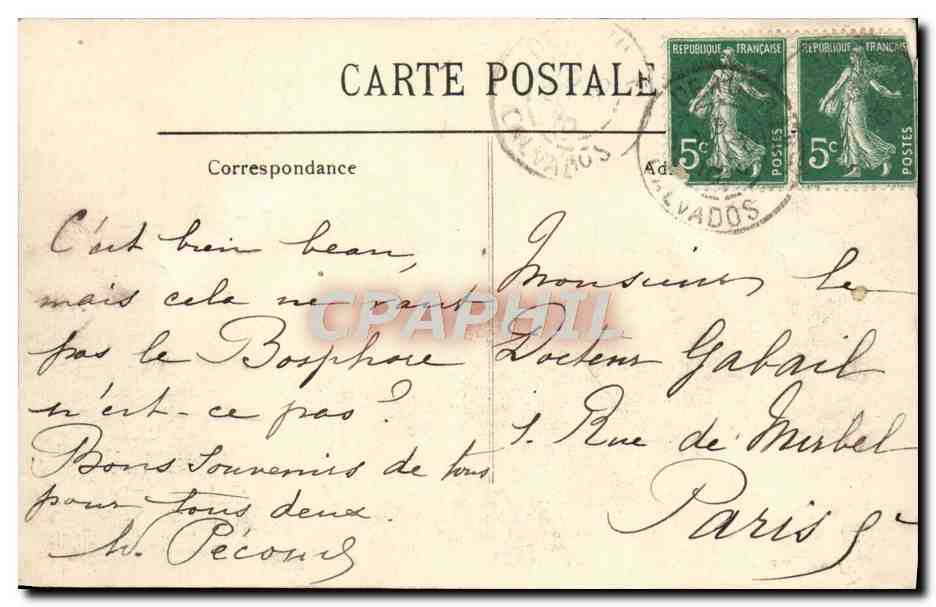 CARTE POSTALE
REPUBLIQUE FRANÇAISE
5c POSTES
REPUBLIQUE FRANÇAISE
5c POSTES
CALVADOS
CALVADOS
Correspondance
Ad
C'est bien beau,
mais cela ne vaut
pas le Bosphore
n'est-ce pas?
Bons Souvenirs de tous
pour tous deux.
Pécoud
Monsieur le
Docteur Gabail
Rue de Mirbel
Paris
CPAPHIL